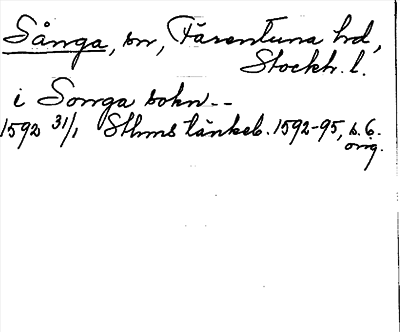 Sånga, sn, Färentuna hd,
Stockh. l.
i Songa sokn--
1592 31/1 Sthms tänkeb. 1592-95, s. 6.
orig.